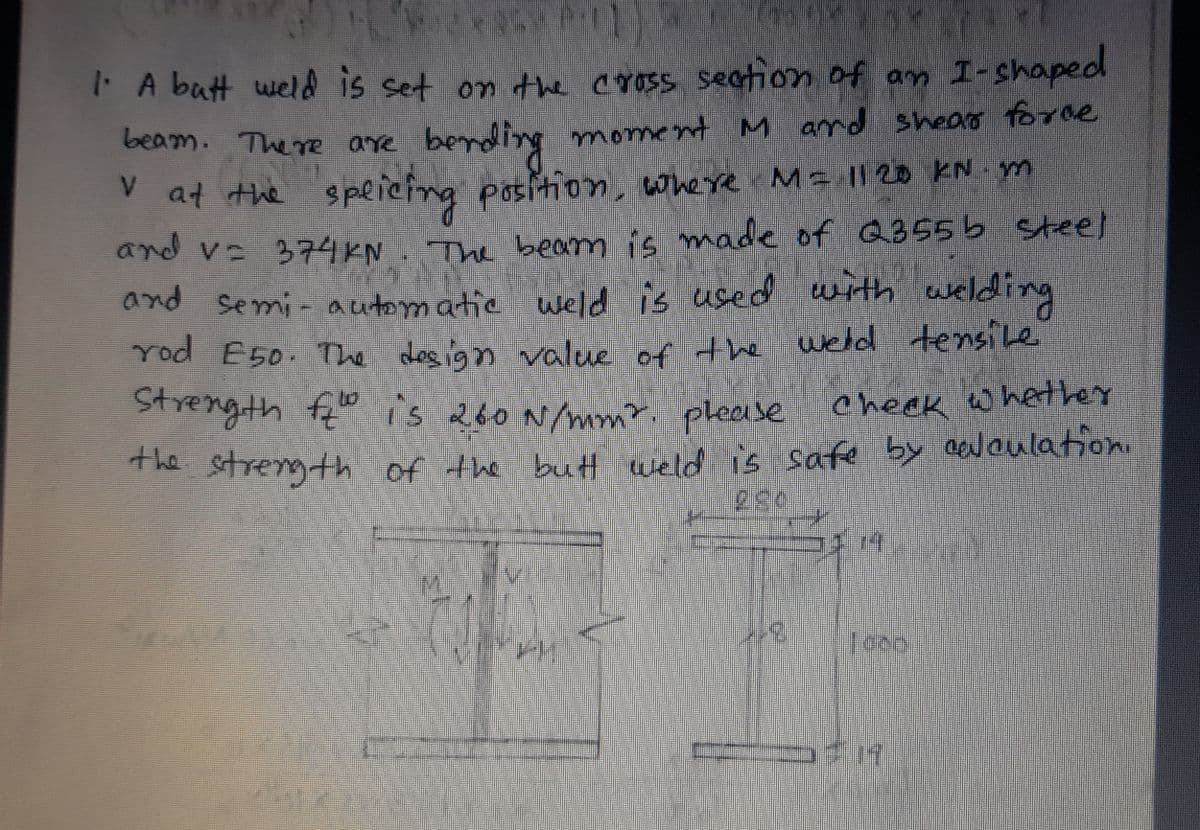 1. A batt weld is set on the cross section of an I-shaped
beam. There are bending moment M and shear force
V at the speicing position, where M = 1120 KN.m
and V = 374KN. The beam is made of Q355b steel
and semi-automatic weld is used with welding
rod E50. The design value of the weld tensile
Strength
is 260 N/mm². please check whether
the strength of the butt weld is safe by calculation.
280
14
M V
8 1000
19